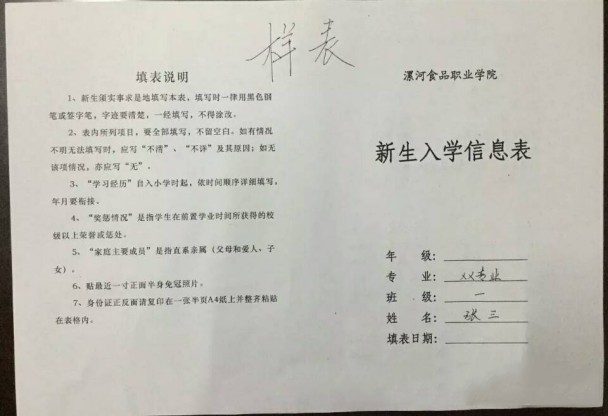 样表
填表说明
1、新生须实事求是地填写本表，填写时一律用黑色钢
笔或签字笔，字迹要清楚，一经填写，不得涂改。
2、表内所列项目，要全部填写，不留空白。如有情况
不明无法填写时，应写“不清”、“不详”及其原因；如无
该项情况，亦应写“无”。
3、“学习经历”自入小学时起，依时间顺序详细填写，
年月要衔接。
4、“奖惩情况”是指学生在前置学业时间所获得的校
级以上荣誉或惩处。
5、“家庭主要成员”是指直系亲属（父母和爱人、子
女）。
6、贴最近一寸正面半身免冠照片。
7、身份证正反面请复印在一张半页A4纸上并整齐粘贴
在表格内。
漯河食品职业学院
新生入学信息表
年　级：
专　业：XX专业
班　级：一
姓　名：张三
填表日期：